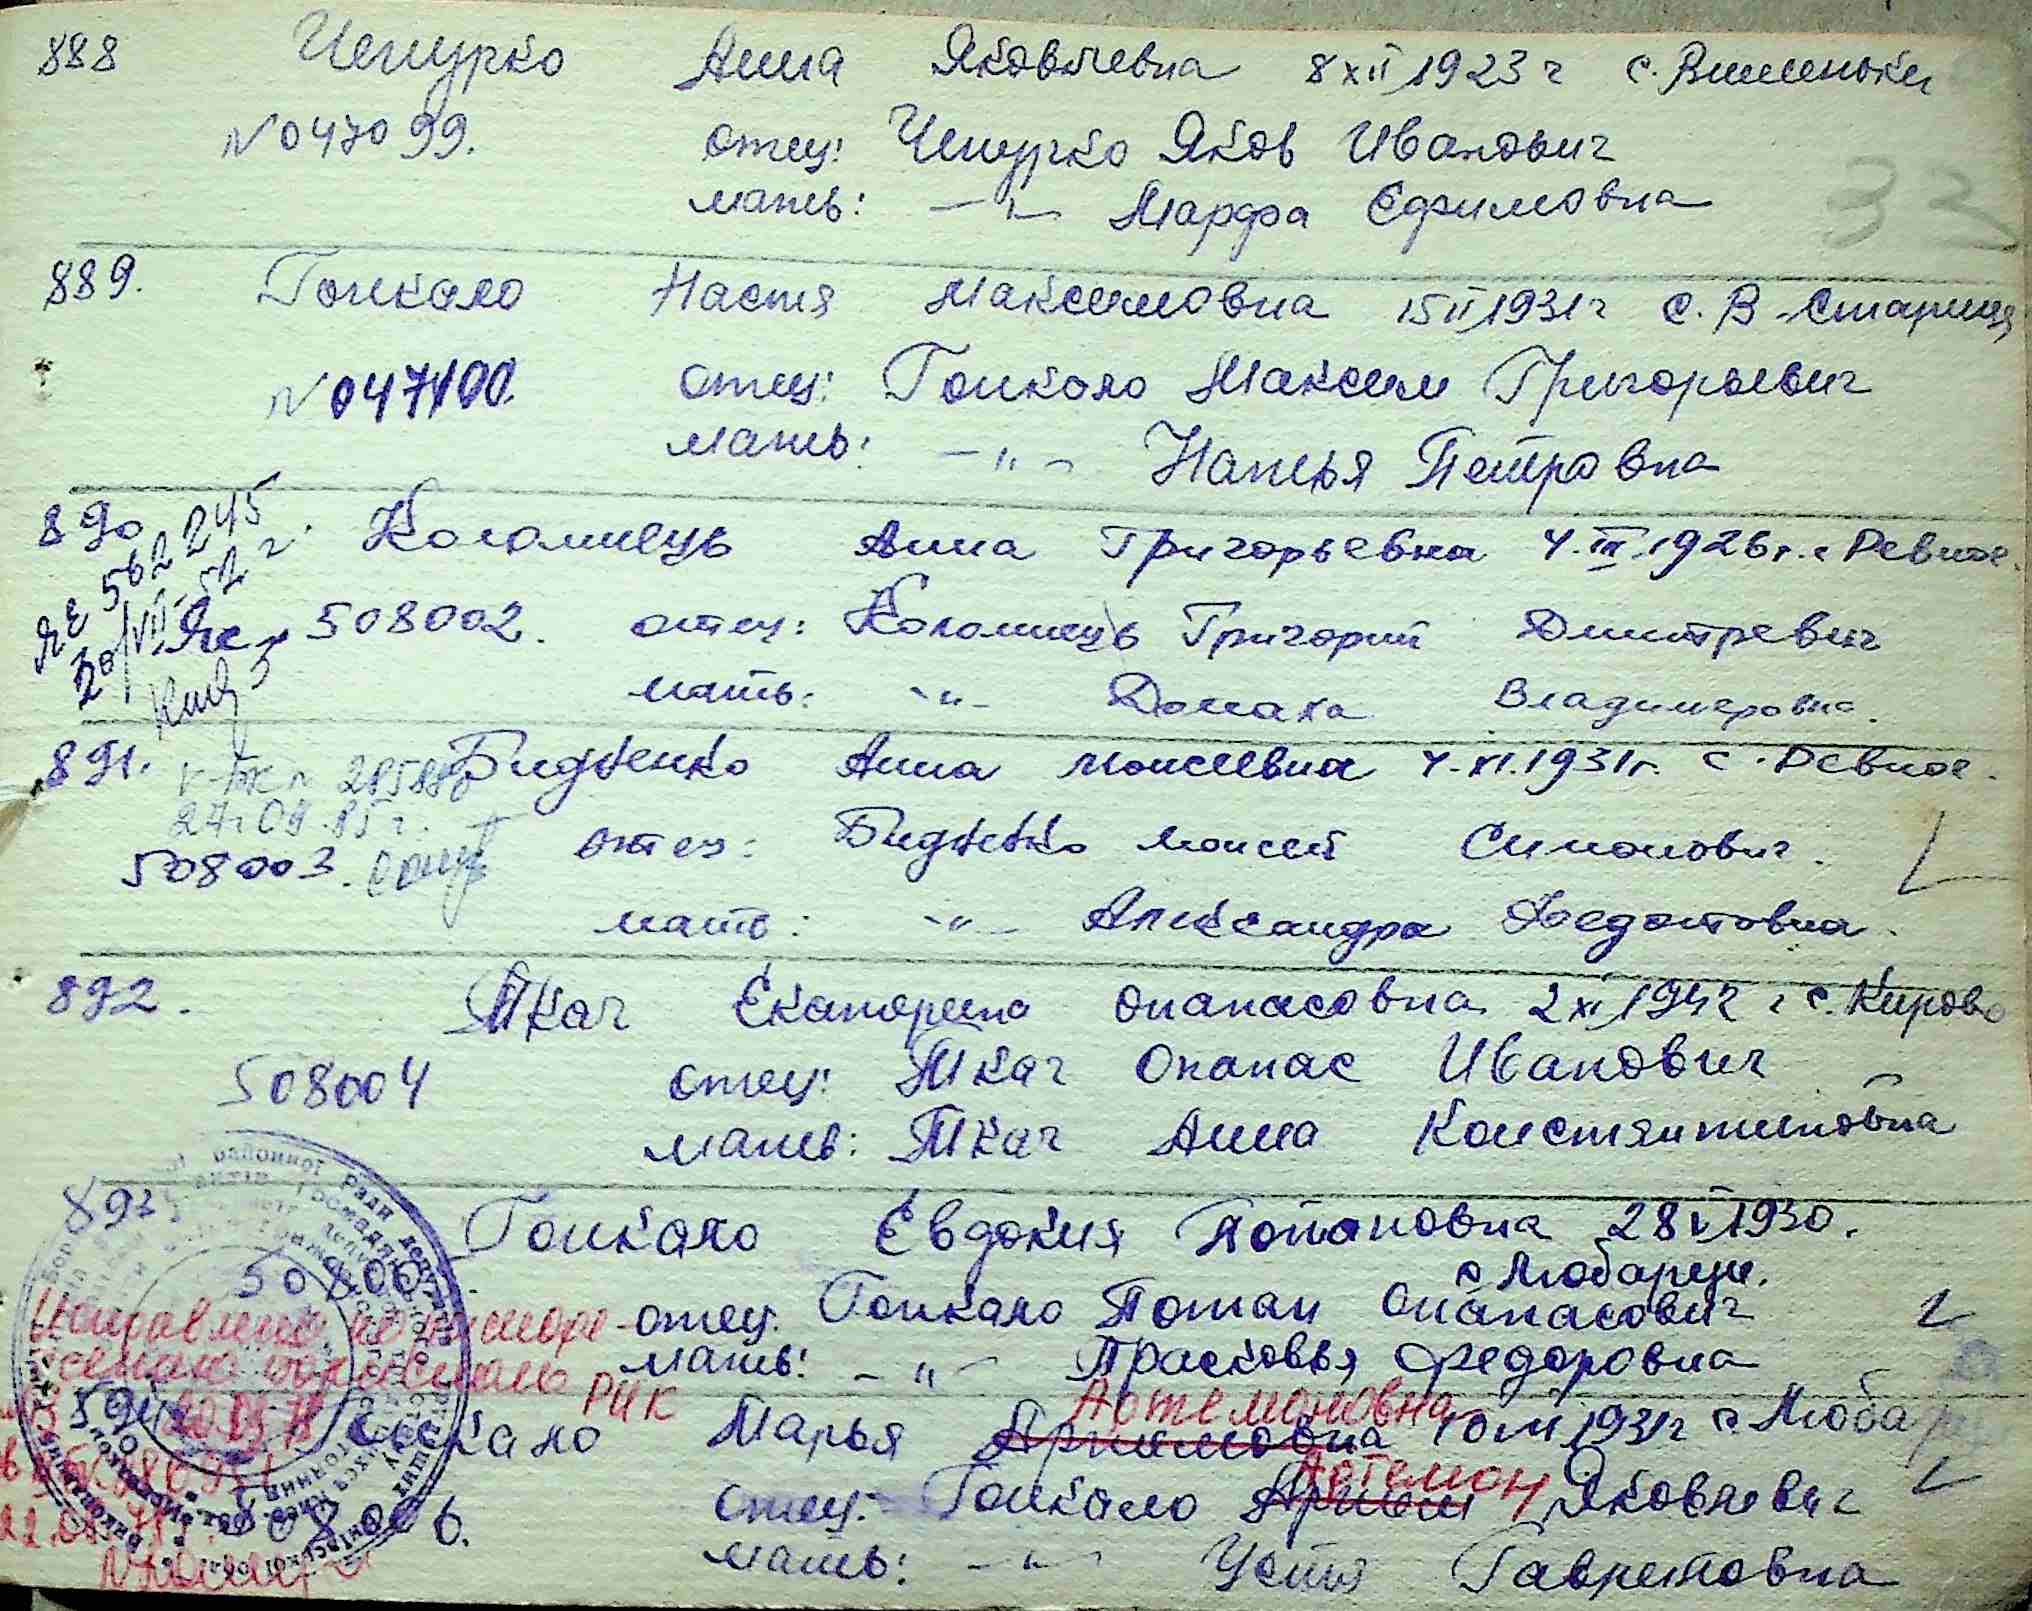 888 Чепурко Анна Яковлевна 8 XII 1923 г с. Вишеньки
N 047099. отец: Чепурко Яков Иванович
мать: —"— Марфа Ефимовна
33
889. Гоикало Настя Максимовна 15 II 1931 г с. В-Старица
N 047100. отец: Гоикало Максим Григорьевич
мать: —"— Наталья Петровна
890 Коломиець Анна Григорьевна 4.III.1926 г. с Ревное.
ЯЕ 562245
20/VII-52 г.
508002. отец: Коломиець Григорий Дмитревич
мать: —"— Домаха Владимеровна.
891. Бидненко Анна Моисеевна 4.XI.1931 г. с. Ревное.
508003. отец: Бидненко Моисей Симонович.
мать: —"— Александра Федотовна.
892. Ткач Екатерина Опанасовна 2 XI 1942 г с. Кирово
508004 отец: Ткач Опанас Иванович
мать: Ткач Анна Константиновна
893 Гоикало Евдокия Потаповна 28 V 1930.
с Любарцы.
отец: Гоикало Потап Опанасович
мать: —"— Прасковья Федоровна
894 Гоикало Марья Артемоновна 10 III 1931 г с Любарцы
отец: Гоикало Артемон Яковлевич
508006. мать: —"— Устя Гавриловна